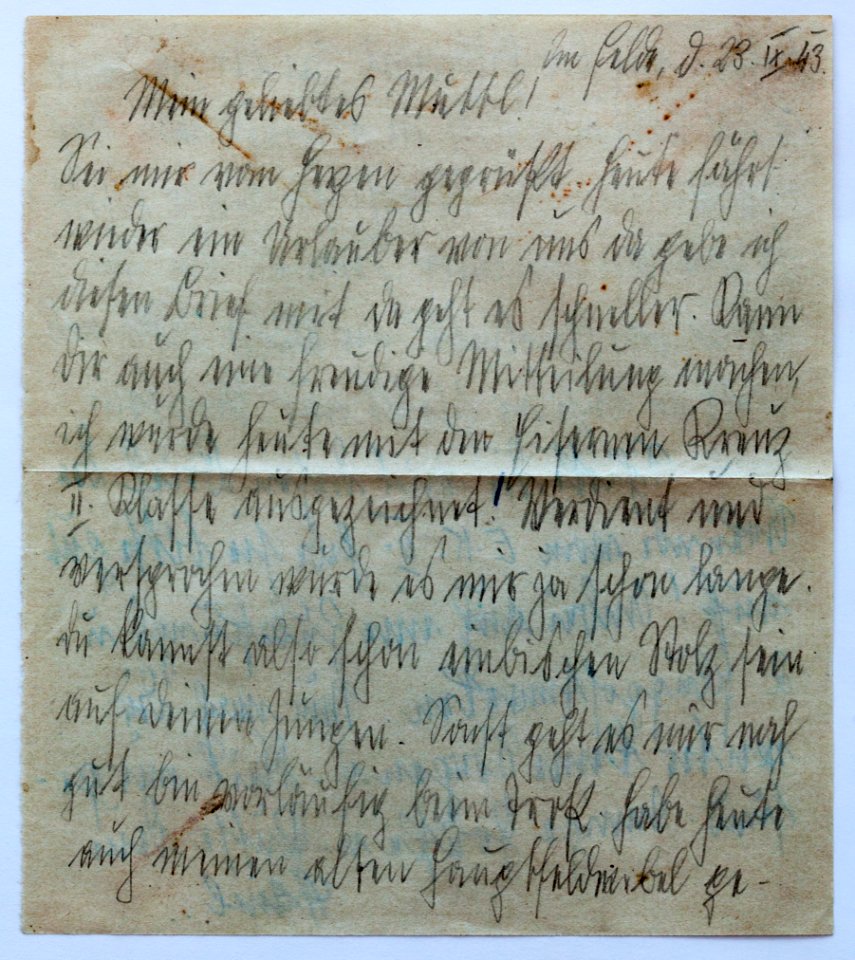 Im Felde, d. 23. IX. 43.
Mein geliebtes Muttl!
Sei mir vom Herzen gegrüßt. Heute fährt
wieder ein Urlauber von uns da gebe ich
diesen Brief mit da geht es schneller. Kann
Dir auch eine freudige Mitteilung machen,
ich wurde heute mit den Eisernen Kreuz
II. Klasse ausgezeichnet! Verdient und
versprochen wurde es mir ja schon lange.
du kannst also schon einbischen Stolz sein
auf deinen Jungen. Sonst geht es mir noch
gut bin vorläufig beim Troß. habe heute
auch meinen alten Hauptfeldwebel ge-